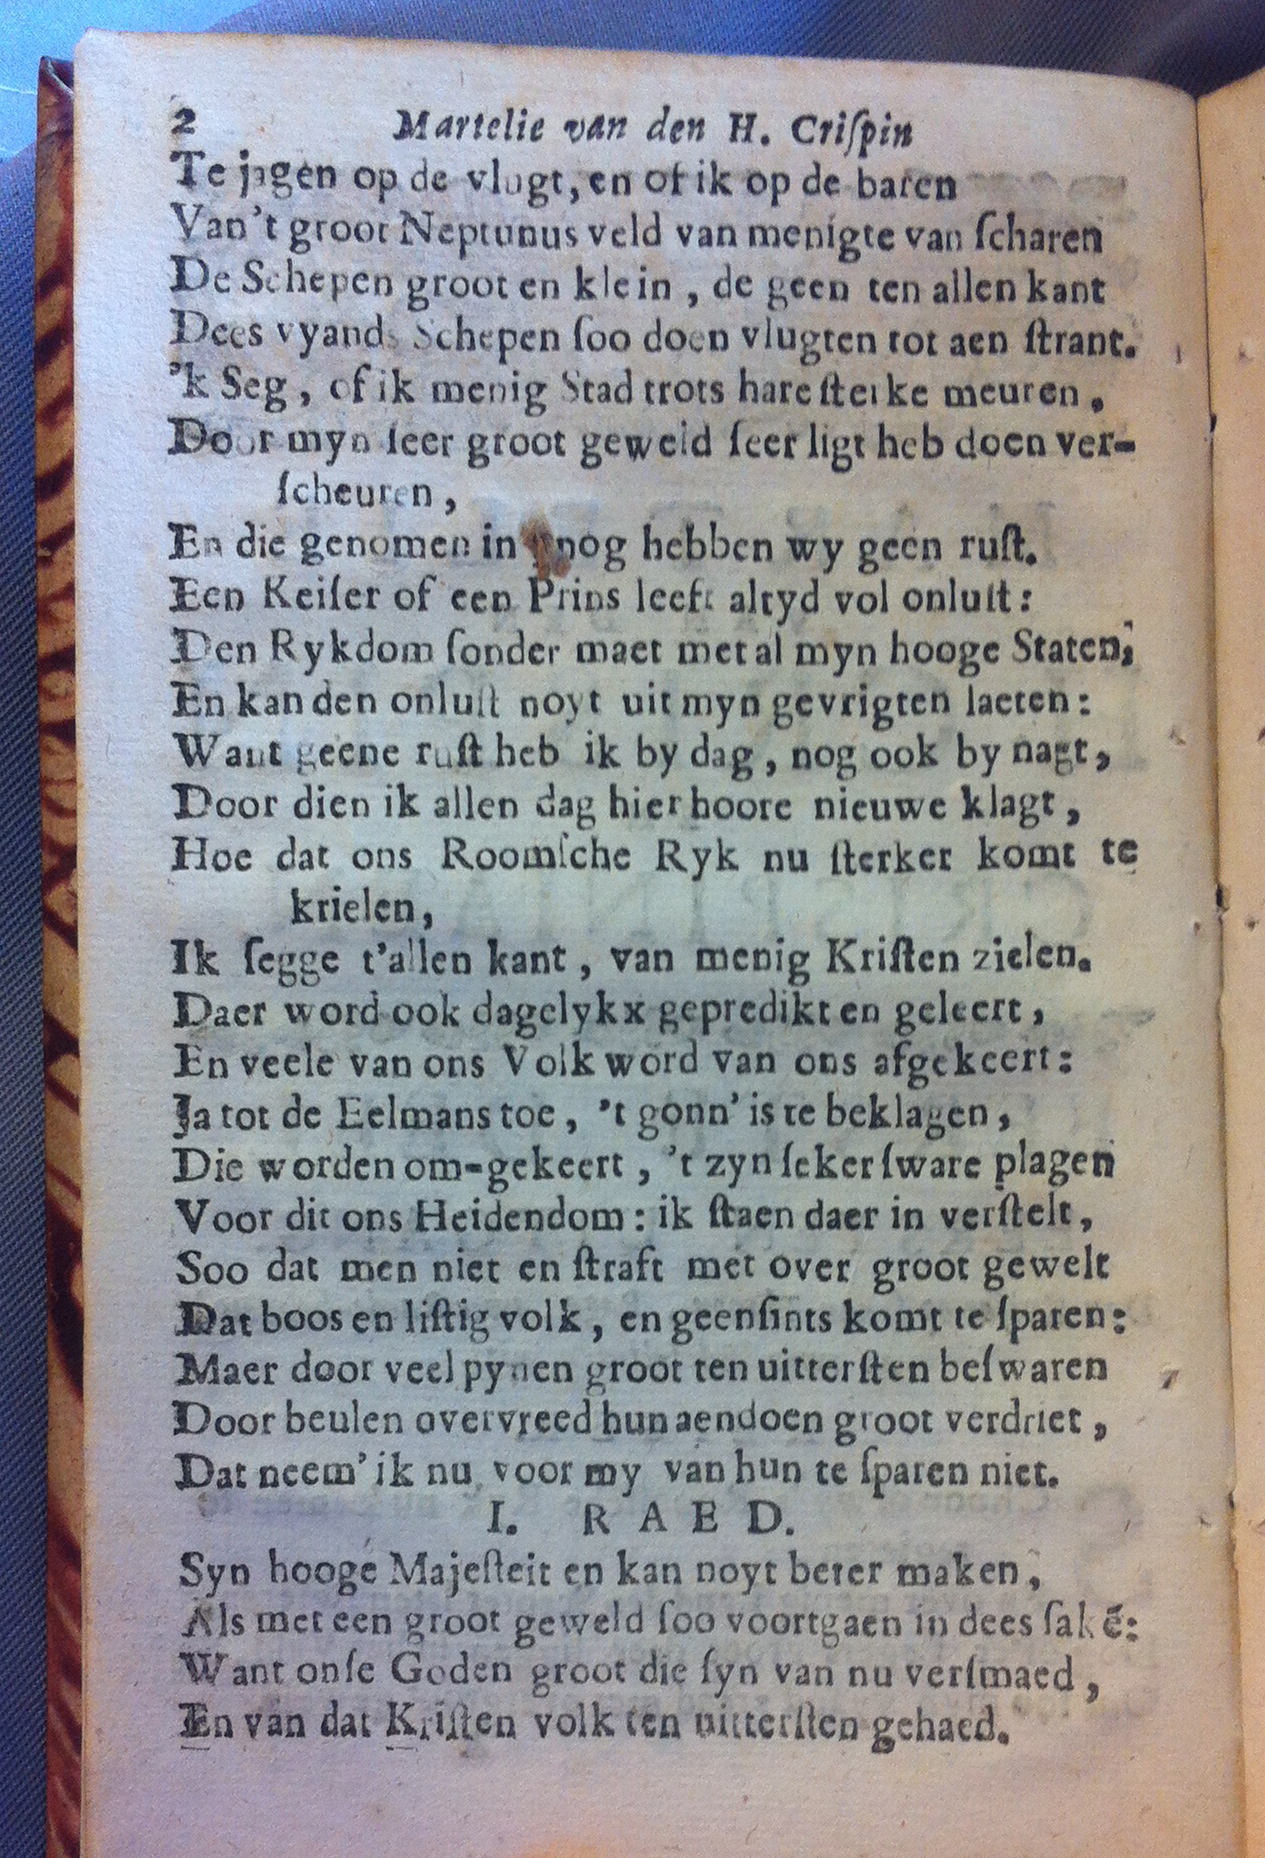 2 Martelie van den H. Criſpin
Te jagen op de vlugt, en of ik op de baren
Van 't groot Neptunus veld van menigte van ſcharen
De Schepen groot en klein, de geen ten allen kant
Dees vyands Schepen ſoo doen vlugten tot aen ſtrant.
'k Seg, of ik menig Stad trots hare ſterke meuren,
Door myn ſeer groot geweld ſeer ligt heb doen ver-
ſcheuren,
En die genomen in nog hebben wy geen ruſt.
Een Keiſer of een Prins leeft altyd vol onluſt:
Den Rykdom ſonder maet met al myn hooge Staten,
En kan den onluſt noyt uit myn gevrigten laeten:
Want geene ruſt heb ik by dag, nog ook by nagt,
Door dien ik allen dag hier hoore nieuwe klagt,
Hoe dat ons Roomſche Ryk nu ſterker komt te
krielen,
Ik ſegge t'allen kant, van menig Kriſten zielen.
Daer word ook dagelykx gepredikt en geleert,
En veele van ons Volk word van ons afgekeert:
Ja tot de Eelmans toe, 't gonn' is te beklagen,
Die worden om-gekeert, 't zyn ſeker ſware plagen
Voor dit ons Heidendom: ik ſtaen daer in verſtelt,
Soo dat men niet en ſtraft met over groot gewelt
Dat boos en liſtig volk, en geenſints komt te ſparen:
Maer door veel pynen groot ten uitterſten beſwaren
Door beulen overvreed hun aendoen groot verdriet,
Dat neem' ik nu voor my van hun te ſparen niet.
I. RAED.
Syn hooge Majeſteit en kan noyt beter maken,
Als met een groot geweld ſoo voortgaen in dees ſakē:
Want onſe Goden groot die ſyn van nu verſmaed,
En van dat Kriſten volk ten uitterſten gehaed.